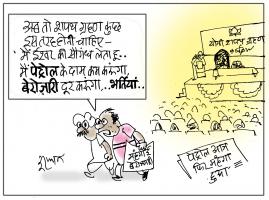 अब तो शपथ ग्रहण कुछ
इस तरह होनी चाहिए-
"मैं ईश्वर की सौगंध लेता हूं..
मैं पेट्रोल के दाम कम करूंगा,
बेरोज़गारी दूर करूंगा,..भर्तियां..
शपथ ग्रहण
महंगाई
बेरोजगारी
पेट्रोल आज
फिर महंगा
हुआ